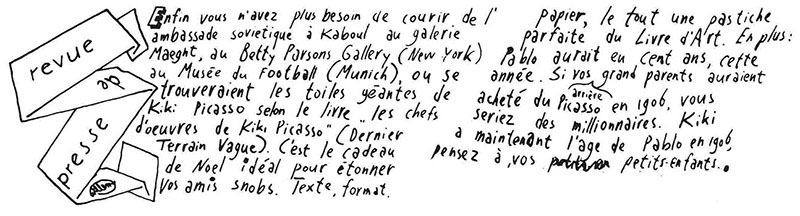 revue
de
presse
Enfin vous n'avez plus besoin de courir de l'
ambassade sovietique à Kaboul au galerie
Maeght, au Betty Parsons Gallery (New York)
au Musée du Football (Munich), ou se
trouveraient les toiles géantes de
Kiki Picasso selon le livre "les chefs
d'oeuvres de Kiki Picasso" (Dernier
Terrain Vague). C'est le cadeau
de Noel idéal pour étonner
vos amis snobs. Texte, format,
papier, le tout une pastiche
parfaite du Livre d'Art. En plus:
Pablo aurait eu cent ans, cette
année. Si vos grand parents auraient
arrière
acheté du Picasso en 1906, vous
seriez des millionnaires. Kiki
a maintenant l'age de Pablo en 1906,
pensez à vos petits-enfants..